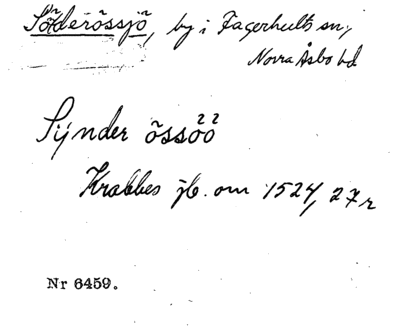 Söderössjö, by i Fagerhults sn,
Norra Åsbo hd
Sÿnder össöö
Krabbes jb. om 1524, 27r
Nr 6459.